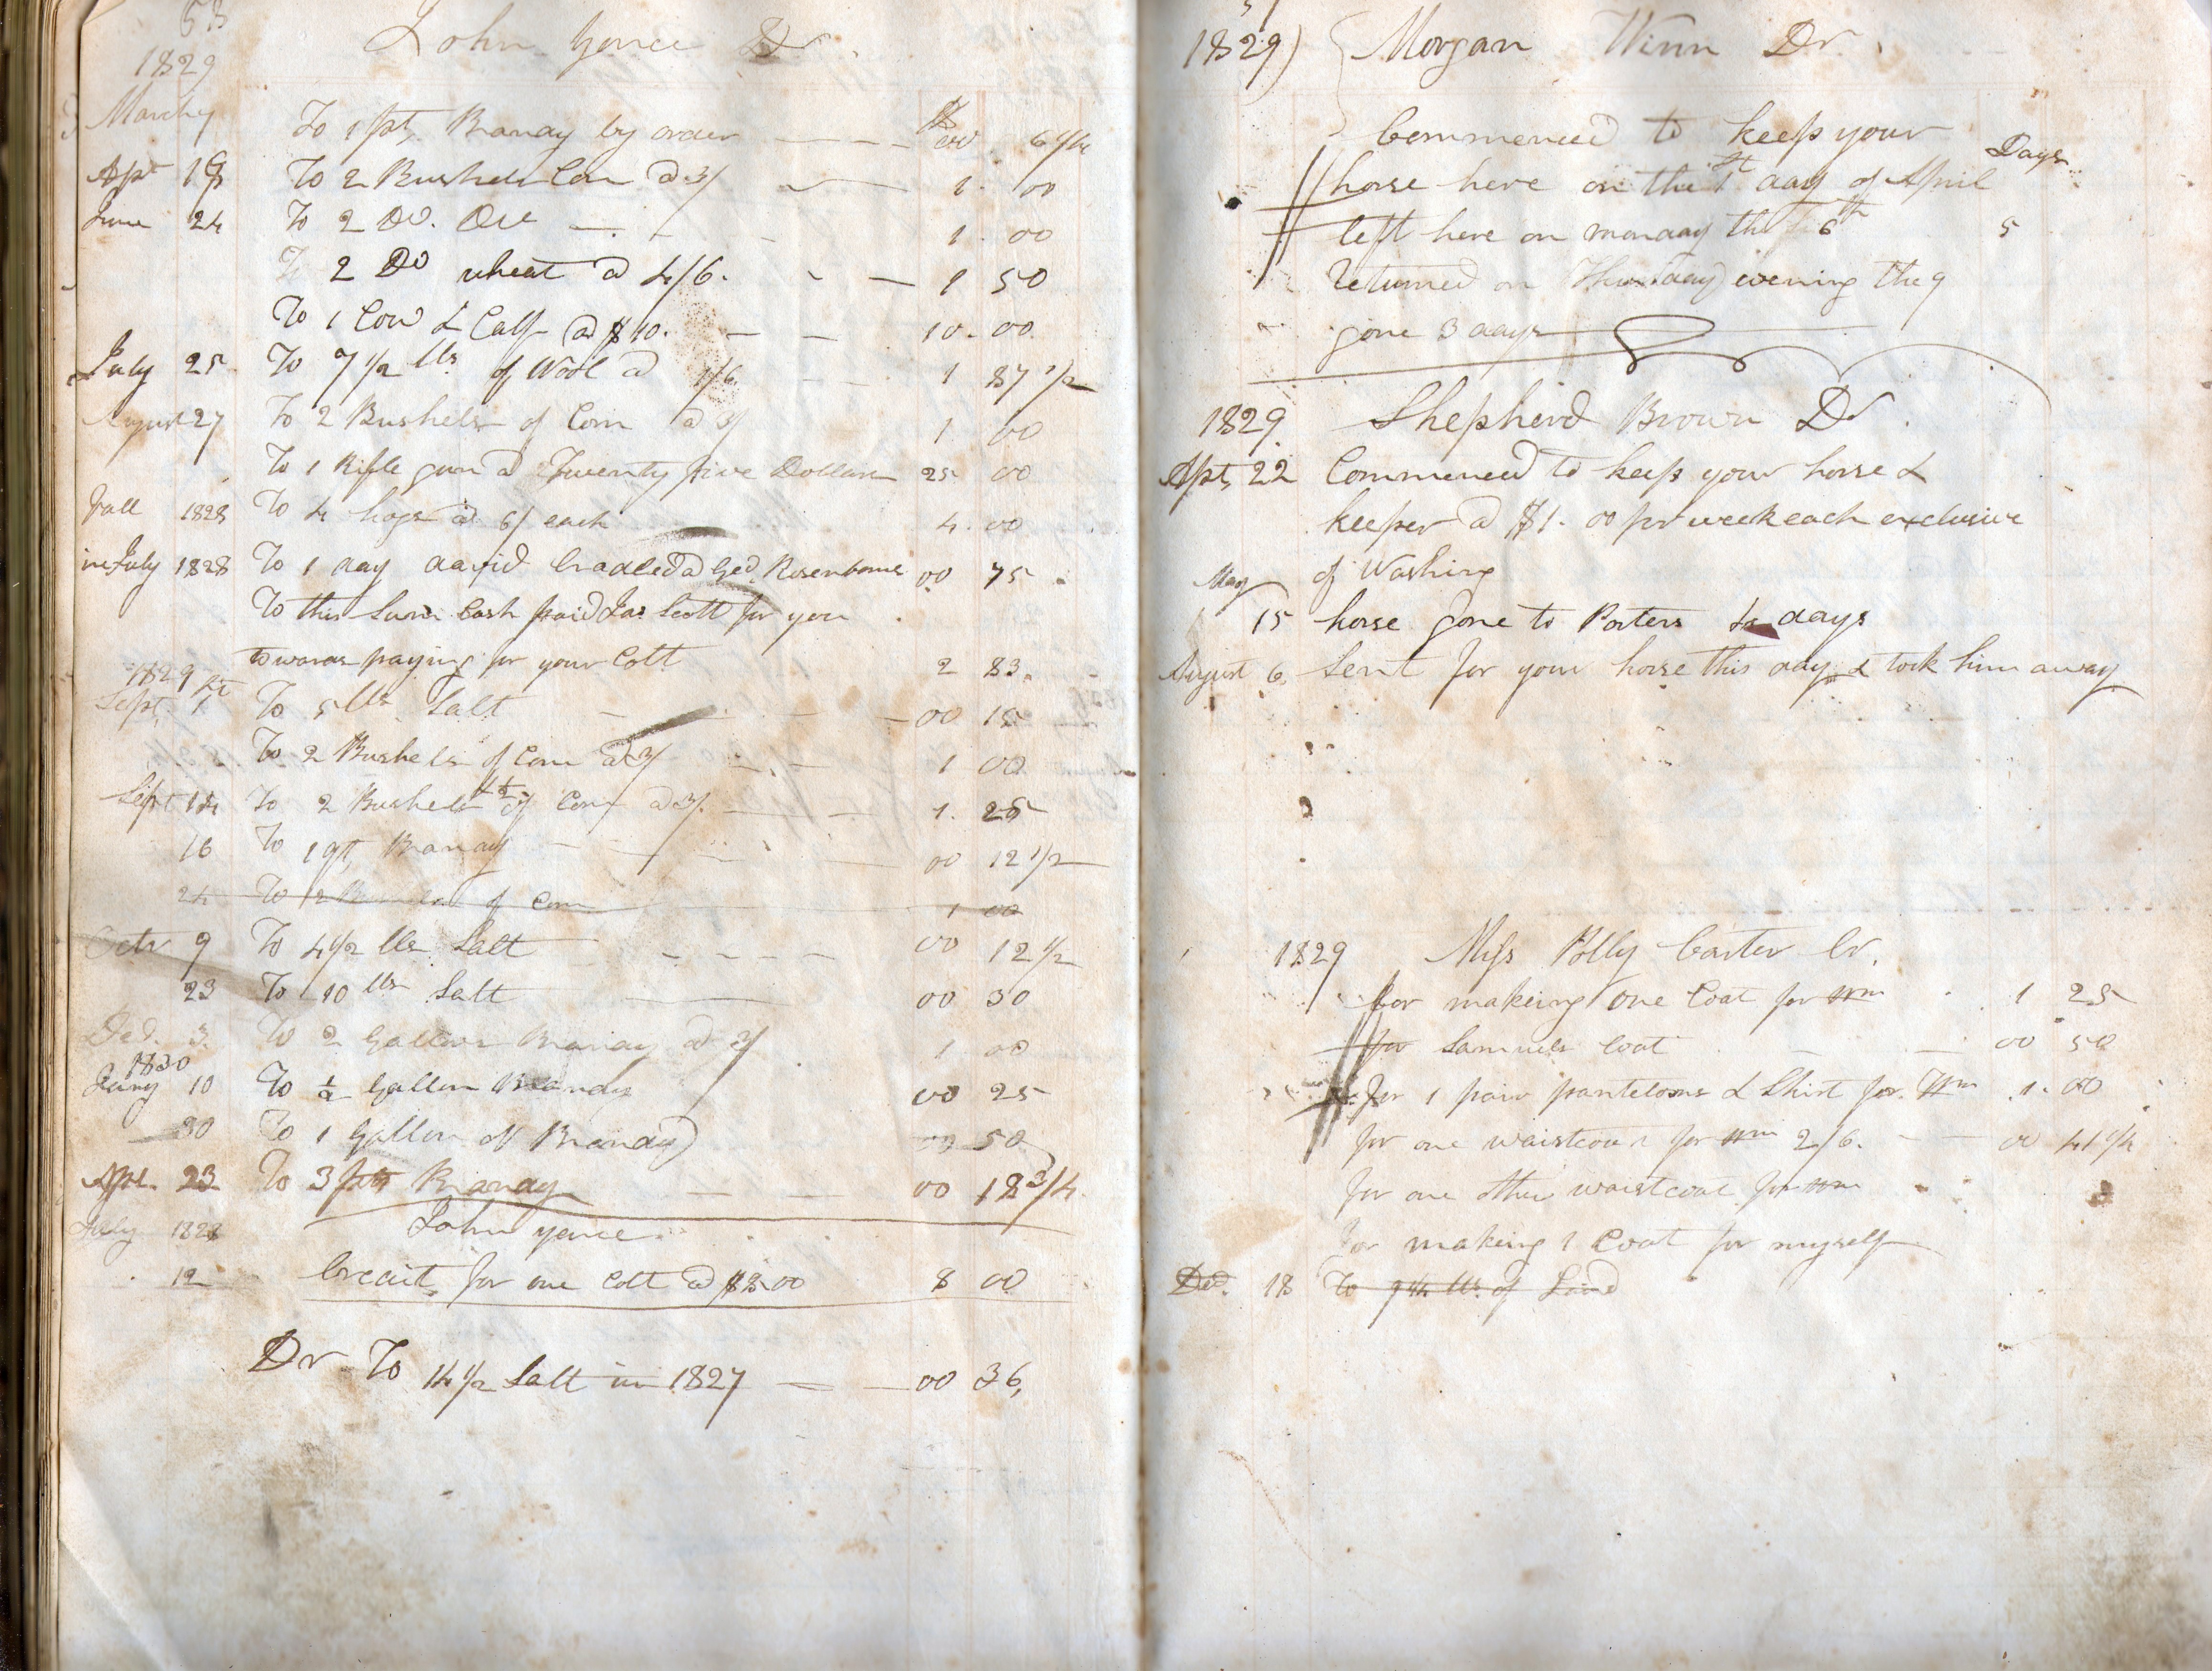 53
1829
John Yonce Dr
March
To 1 pt, Brandy by order 00 6 1/4
Apr 18 To 2 Bushels Corn @ 3/ 1. 00
June 24 To 2 Do. Do 1. 00
To 2 Do wheat @ 4/6. 1 50
To 1 Cow & Calf @ $10. 10. 00
July 25 To 7 1/2 lbs of Wool @ 1/6 1 87 1/2
August 27 To 2 Bushels of Corn @ 3/ 1 00
To 1 Rifle gun @ Twenty five Dollars 25 00
Fall 1828 To 4 hogs @ 6/ each 4. 00
in July 1828 To 1 day David Cradled @ Geo. Rosenbame 00 75
To this Sum Cash paid Jas Scott for you
towards paying for your Colt 2 83.
1829
Sept. 1st To 5 lbs Salt 00 15
To 2 Bushels of Corn @ 3/ 1 00
Sept 14 To 2 1/2 Bushels of Corn @ 3/. 1. 25
16 To 1 qt, Brandy 00 12 1/2
24 To 2 Bushels of Corn 1 00
Octr 9 To 4 1/2 lbs Salt 00 12 1/2
23 To 10 lbs Salt 00 30
Ded. 3. To 2 Gallons Brandy @ 3/ 1 00
1830
Jany 10 To 1/2 Gallon Brandy 00 25
30 To 1 Gallon of Brandy 00 50
Apr. 23 To 3 pts Brandy 00 18 3/4
July 1828 John yonce
12 Credit, for one Colt @ $8.00 8 00
Dr To 14 1/2 Salt in 1827 00 36,
1829) Morgan Winn Dr.
Commenced to keep your
Days
horse here on the 1st day of April
left here on monday the 6th 5
Returned on Thursday evening the 9
gone 3 days
1829 Shepherd Brown Dr.
Apr, 22 Commenced to keep your horse &
keeper @ $1. 00 pr week each exclusive
of Washing
May
15 horse gone to Porters 4 days
August 6 Sent for your horse this day & took him away
1829 Miss Polly Carter Cr.
for makeing one Coat for Wm 1 25
for Samuels Coat 00 50
for 1 pair panteloons & Shirt for Wm 1. 00
for one waistcoat for Wm 2/6. 00 41 1/4
for one other waistcoat for Wm
for making 1 Coat for myself
Ded. 18 To 9 1/4 lbs of